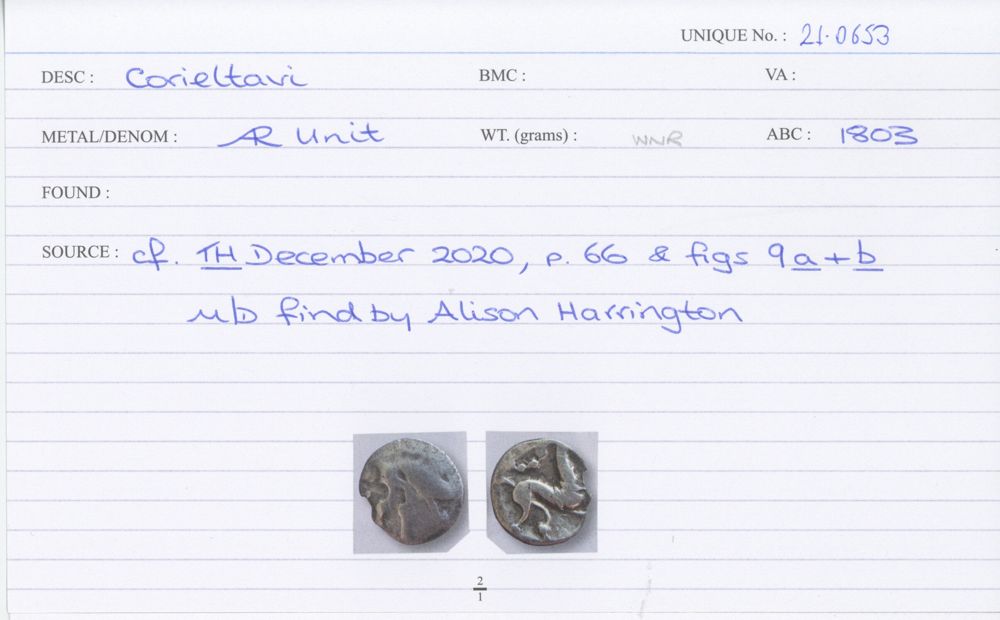 UNIQUE No. : 21.0653
DESC : Corieltavi BMC : VA :
METAL/DENOM : AR Unit WT. (grams) : WNR ABC : 1803
FOUND :
SOURCE : cf. TH December 2020, p. 66 & figs 9a+b
m/D find by Alison Harrington
2
1